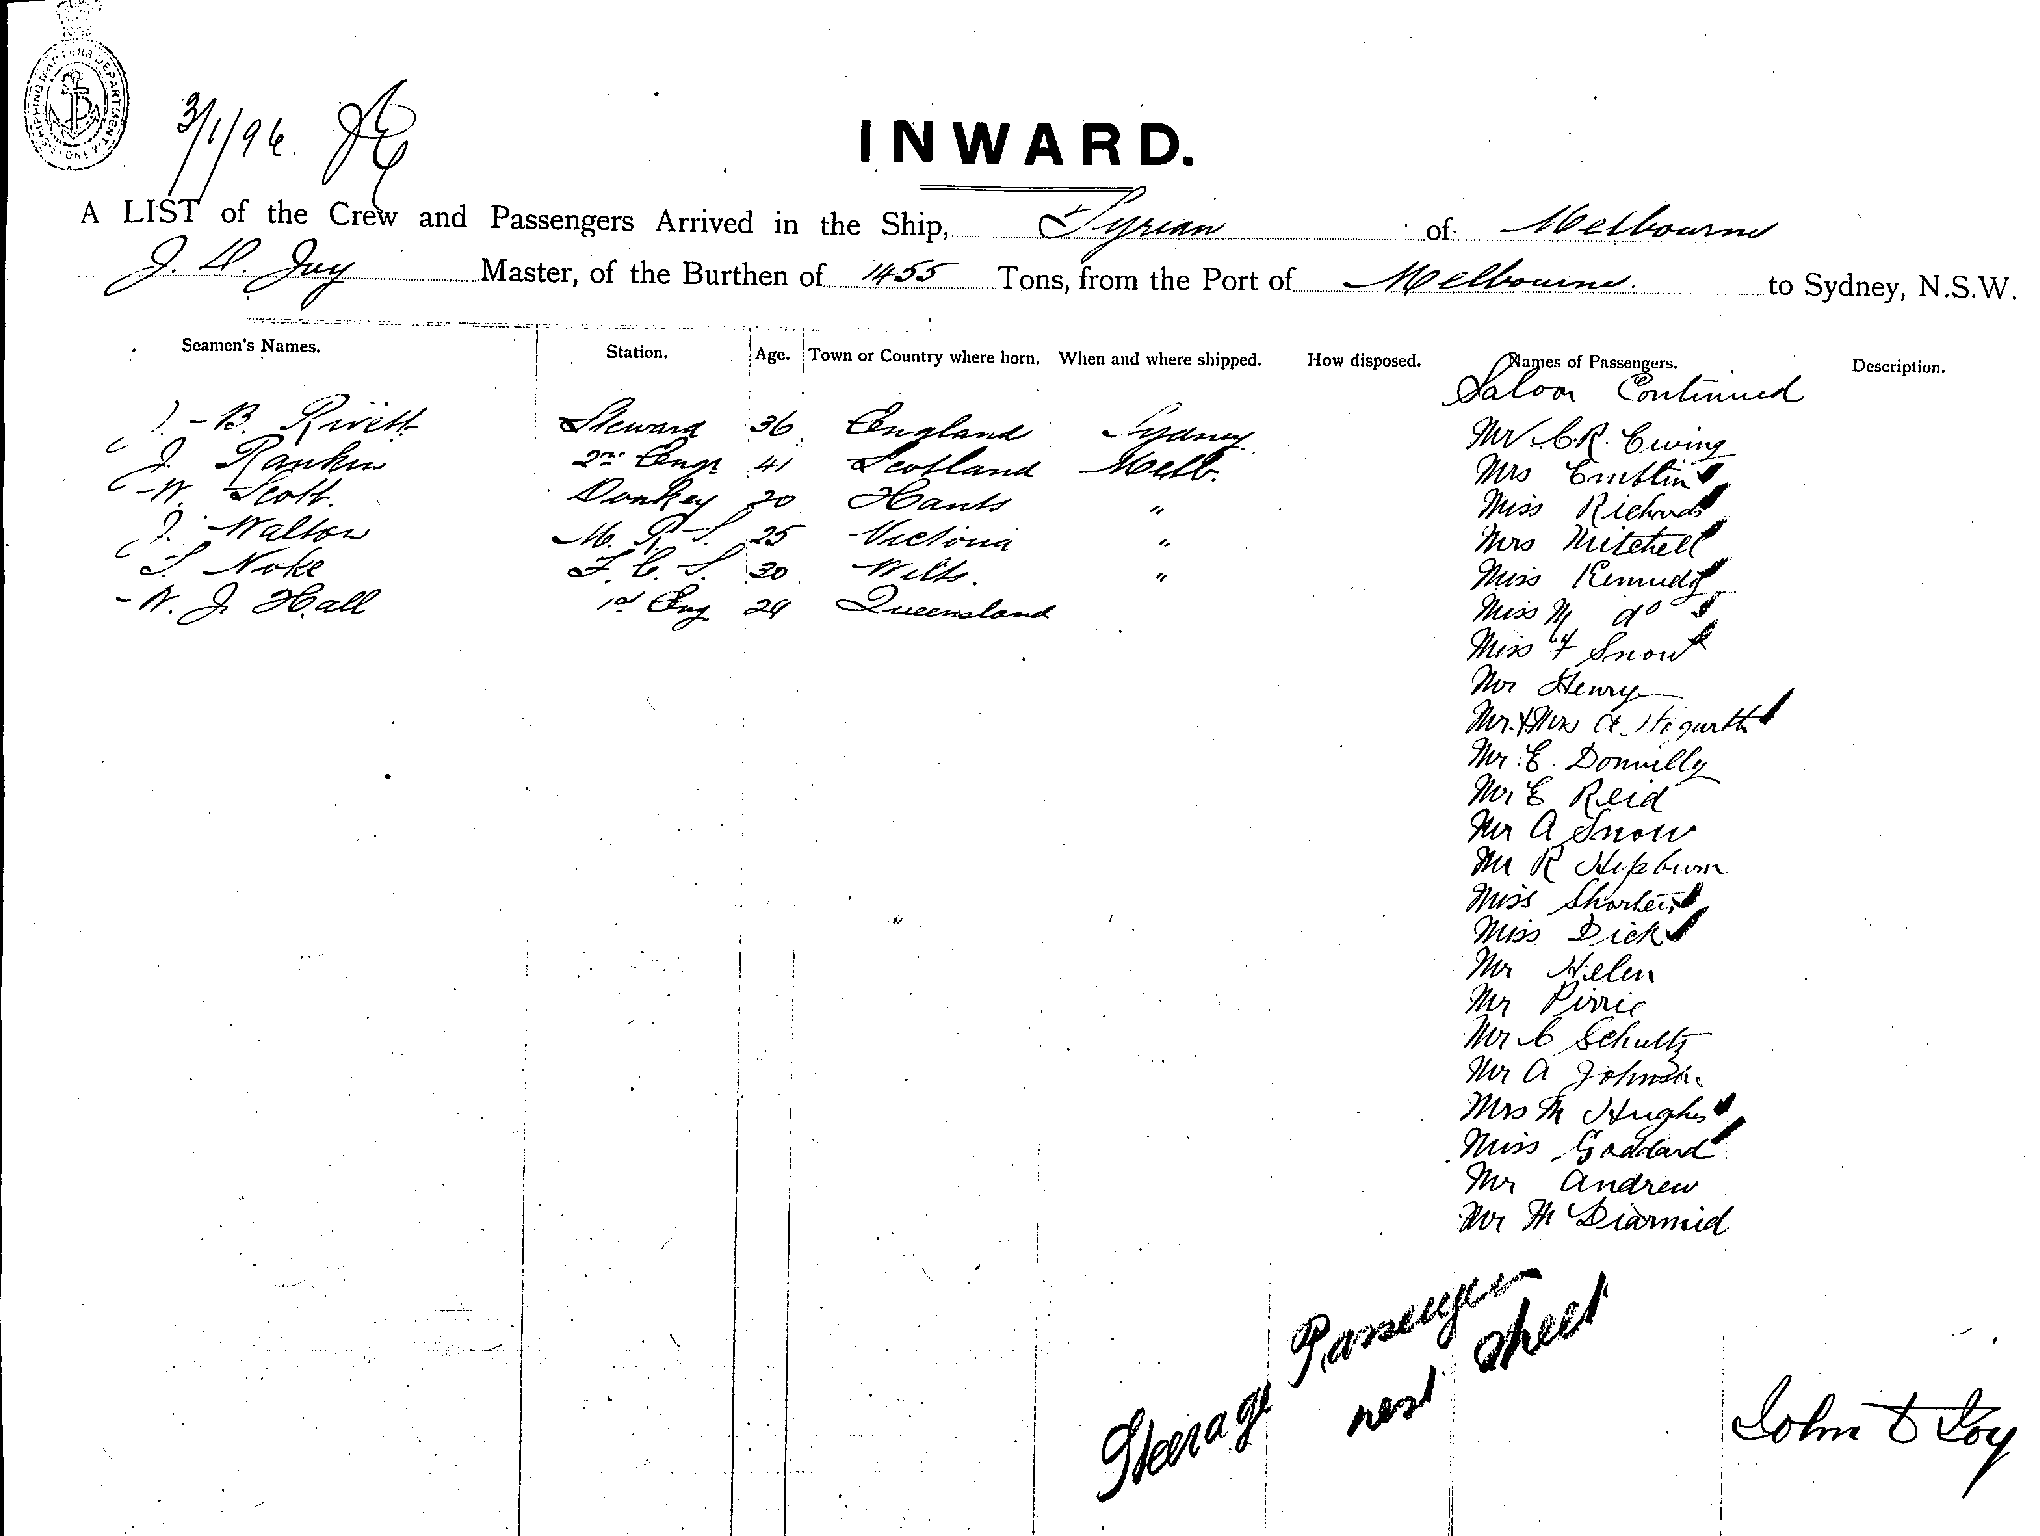 SHIPPING MASTERS DEPARTMENT
3/1/96.
INWARD.
A LIST of the Crew and Passengers Arrived in the Ship, Tyrian of Melbourne
J. D. Joy Master, of the Burthen of 1455 Tons, from the Port of Melbourne. to Sydney, N.S.W.
Seamen's Names. Station. Age. Town or Country where born. When and where shipped. How disposed. Names of Passengers. Description.
Saloon Continued
J. B. Rivett Steward 36 England Sydney
J. Rankin 2nd Engr 41 Scotland Melb.
W. Scott. Donkey 20 Hants "
J. Walton M. R. S. 25 Victoria "
S. Noke F. C. S. 30 Wilts. "
W. J. Hall 1st Eng 29 Queensland
Mr C R. Ewing
Mrs Emblin
Miss Richards
Mrs Mitchell
Miss Kennedy
Miss M do
Miss F Snow
Mr Henry
Mr. & Mrs A. Hogarth
Mr. E. Donnelly
Mr E Reid
Mr A Snow
Mr R Hepburn
Miss Shorter
Miss Dick
Mr Helen
Mr Pirrie
Mr C Schultz
Mr A Johnson
Mrs M Hughes
Miss Goddard
Mr Andrew
Mr McDiarmid
Steerage Passenger
next sheet
John D Joy